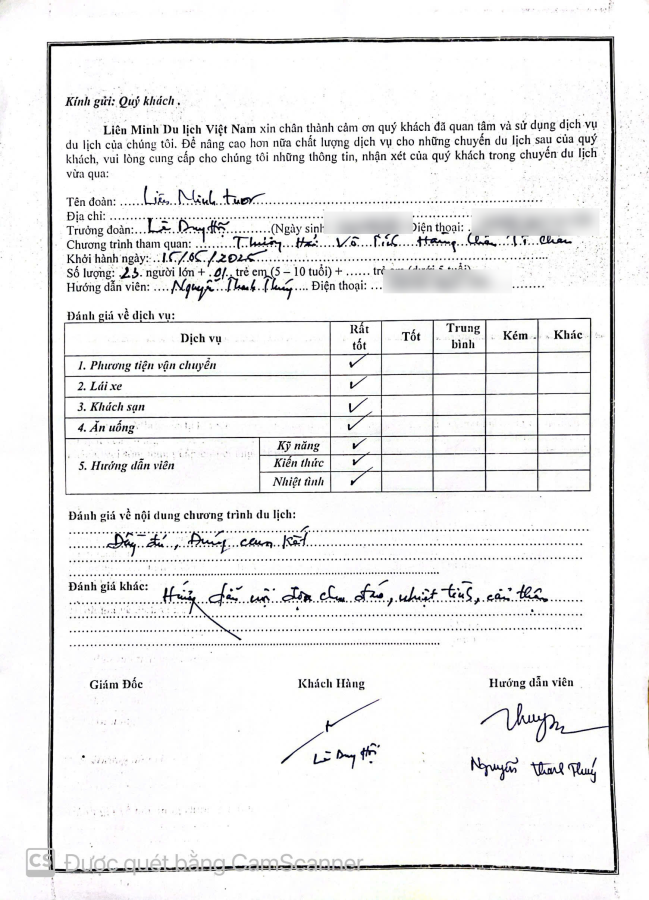 Kính gửi: Quý khách .
Liên Minh Du lịch Việt Nam xin chân thành cảm ơn quý khách đã quan tâm và sử dụng dịch vụ
du lịch của chúng tôi. Để nâng cao hơn nữa chất lượng dịch vụ cho những chuyến du lịch sau của quý
khách, vui lòng cung cấp cho chúng tôi những thông tin, nhận xét của quý khách trong chuyến du lịch
vừa qua:
Tên đoàn: Liên Minh tour
Địa chỉ:
Trưởng đoàn: Lê Duy Hội (Ngày sinh Điện thoại:
Chương trình tham quan: Thượng Hải Vô Tích Hàng Châu
Khởi hành ngày: 15/05/2025
Số lượng: 23 người lớn + 01 trẻ em (5 – 10 tuổi) + ...... trẻ em (dưới 5 tuổi)
Hướng dẫn viên: Nguyễn Thanh Thúy Điện thoại:
Đánh giá về dịch vụ:
Dịch vụ Rất tốt Tốt Trung bình Kém Khác
1. Phương tiện vận chuyển ✓
2. Lái xe ✓
3. Khách sạn ✓
4. Ăn uống ✓
5. Hướng dẫn viên Kỹ năng ✓
Kiến thức ✓
Nhiệt tình ✓
Đánh giá về nội dung chương trình du lịch:
Đầy đủ, Đúng cam kết
Đánh giá khác: Hướng dẫn chu đáo, nhiệt tình, cẩn thận
Giám Đốc Khách Hàng Hướng dẫn viên
Lê Duy Hội
Nguyễn Thanh Thúy
CS Được quét bằng CamScanner